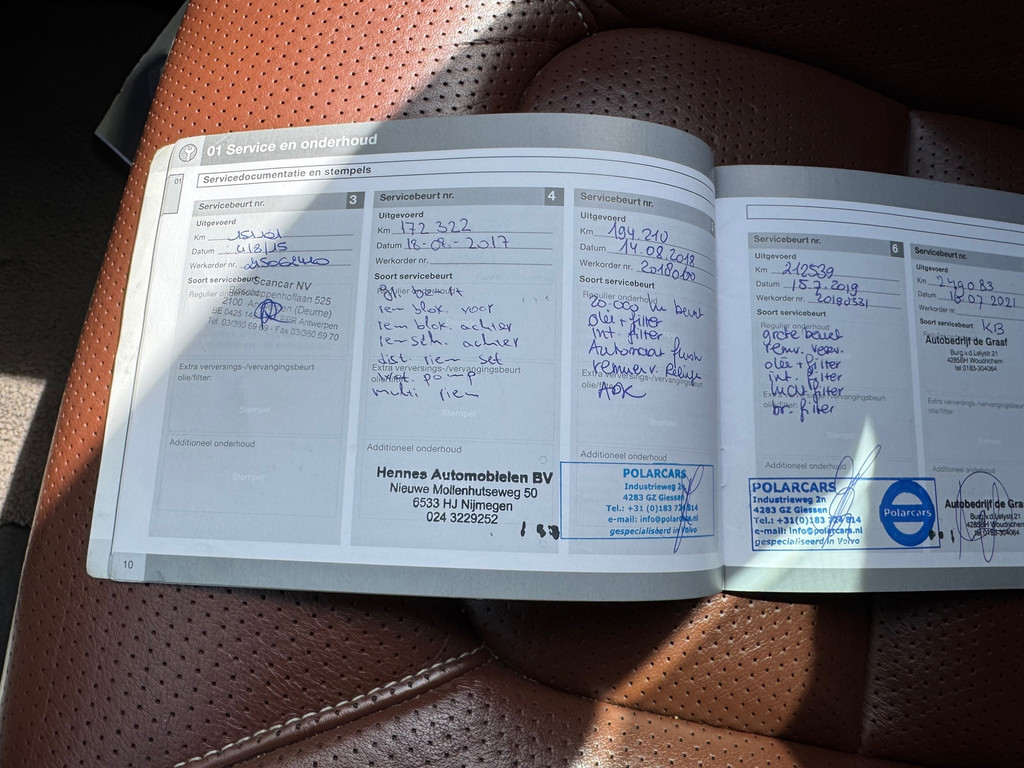 01 Service en onderhoud
01
Servicedocumentatie en stempels
Servicebeurt nr. 3
Uitgevoerd
Km 151101
Datum 4/8/15
Werkorder nr.
Soort servicebeurt
Scancar NV
Bisschoppenhoflaan 525
2100 Antwerpen (Deurne)
BE 0425 14 RPR Antwerpen
Tel. 03/360 69 69 - Fax 03/360 69 70
Extra verversings-/vervangingsbeurt
olie/filter:
Stempel
Additioneel onderhoud
Stempel
10
Servicebeurt nr. 4
Uitgevoerd
Km 172 322
Datum 18-08-2017
Werkorder nr.
Soort servicebeurt
gr. beurt
rem blok. voor
rem blok. achter
rem sch. achter
dist. riem set
pomp
multi riem
Stempel
Additioneel onderhoud
Hennes Automobielen BV
Nieuwe Mollenhutseweg 50
6533 HJ Nijmegen
024 3229252
Servicebeurt nr.
Uitgevoerd
Km 194.210
Datum 14.08.2018
Werkorder nr.
Soort servicebeurt
Regulier onderhoud
20.000 km beurt
olie + filter
int. filter
Automaat flush
Extra verversings-/vervangingsbeurt
olie/filter:
APK
Additioneel onderhoud
POLARCARS
Industrieweg 2n
4283 GZ Giessen
Tel.: +31 (0)183 724 814
e-mail: info@polarcars.nl
gespecialiseerd in Volvo
Servicebeurt nr. 6
Uitgevoerd
Km 212539
Datum 15.7.2019
Werkorder nr. 20190331
Soort servicebeurt
Regulier onderhoud
grote beurt
remv. verv.
olie + filter
int. filter
lucht filter
br. filter
Stempel
Additioneel onderhoud
POLARCARS
Industrieweg 2n
4283 GZ Giessen
Tel.: +31(0)183 724 814
e-mail: info@polarcars.nl
gespecialiseerd in Volvo
Polarcars
Servicebeurt nr.
Uitgevoerd
Km 249083
Datum 16.07.2021
Werkorder nr.
Soort servicebeurt KB
Autobedrijf de Graaf
Burg.v.d.Lelystr.21
4285BH Woudrichem
tel:0183-304064
Extra verversings-/vervangingsbeurt
olie/filter:
Additioneel onderhoud
Autobedrijf de Graa
Burg.v.d.Lelystr.21
4285BH Woudrichem
tel:0183-304064